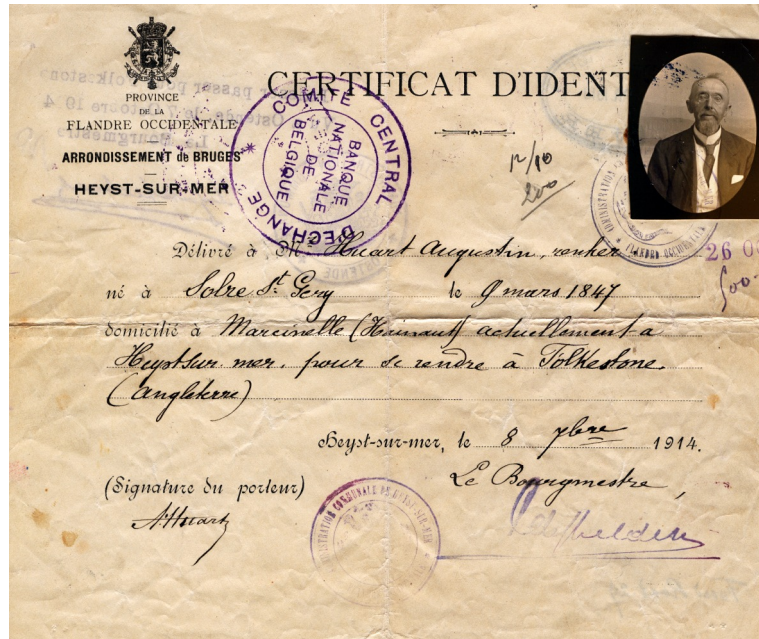 PROVINCE
DE LA
FLANDRE OCCIDENTALE
ARRONDISSEMENT de BRUGES
HEYST-SUR-MER
CERTIFICAT D'IDENT
COMITÉ CENTRAL D'ÉCHANGE
BANQUE
NATIONALE
DE
BELGIQUE
12/10
200
Délivré à Mr Huart Augustin, rentier
26 OC
500
né à Solre St Gery le 9 mars 1847
domicilié à Marcinelle (Hainaut) actuellement a
Heyst sur mer, pour se rendre à Folkestone
(Angleterre)
Heyst-sur-mer, le 8 7bre 1914.
(Signature du porteur)
Le Bourgmestre,
AHuart
ADMINISTRATION COMMUNALE DE HEYST-SUR-MER